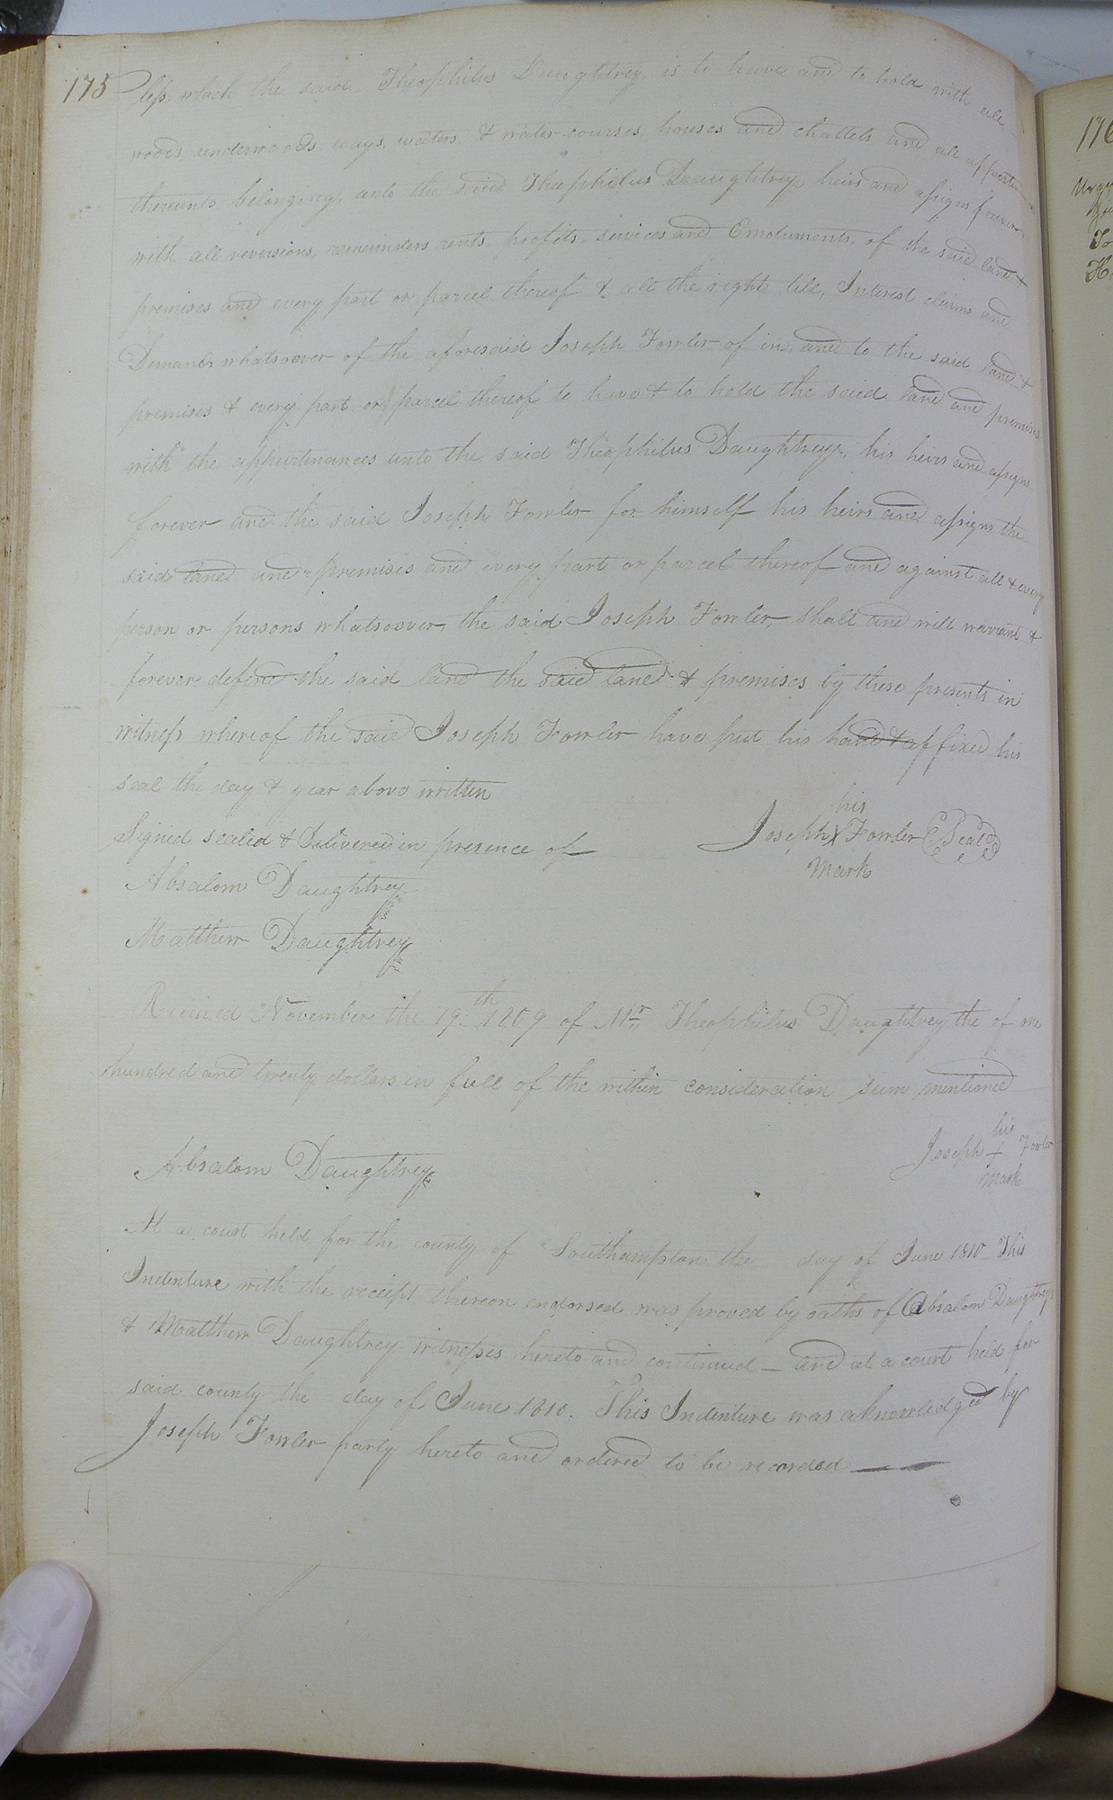 175
less which the said Theophilus Daughtrey is to have and to hold with all
woods, underwoods, ways, waters & water-courses, houses and chattels and all appurten
thereunto belonging, unto the said Theophilus Daughtrey, heirs and assigns forever
with all reversions, remainders rents, profits, services and Emoluments, of the said land &
premises and every part or parcel thereof & all the right title, Interest claims and
Demands whatsoever of the aforesaid Joseph Fowler of in, and to the said land &
premises & every part or parcel thereof to have & to hold the said land and premises
with the appurtinances unto the said Theophilus Daughtrey, his heirs and assigns
forever and the said Joseph Fowler for himself his heirs and assigns the
said land and premises and every part or parcel thereof and against all & every
person or persons whatsoever, the said Joseph Fowler, shall and will warrant &
forever defend the said land the said land & premises by these presents in
witness whereof the said Joseph Fowler have put his hand & affixed his
seal the day & year above written
Signed sealed & Delivered in presence of
his
Joseph X Fowler Seal
Mark
Absalom Daughtrey
Matthew Daughtrey
Received November the 19th 1809 of Mr Theophilus Daughtrey the of one
hundred and twenty dollars in full of the within consideration sum mentioned
his
Joseph + Fowler
Mark
Absalom Daughtrey
At a court held for the county of Southampton the day of June 1810 This
Indenture with the receipt thereon endorsed was proved by oaths of Absalom Daughtrey
& Matthew Daughtrey witnesses hereto and continued — and at a court held for
said county the day of June 1810. This Indenture was aknowledged by
Joseph Fowler party hereto and ordered to be recorded
176
To